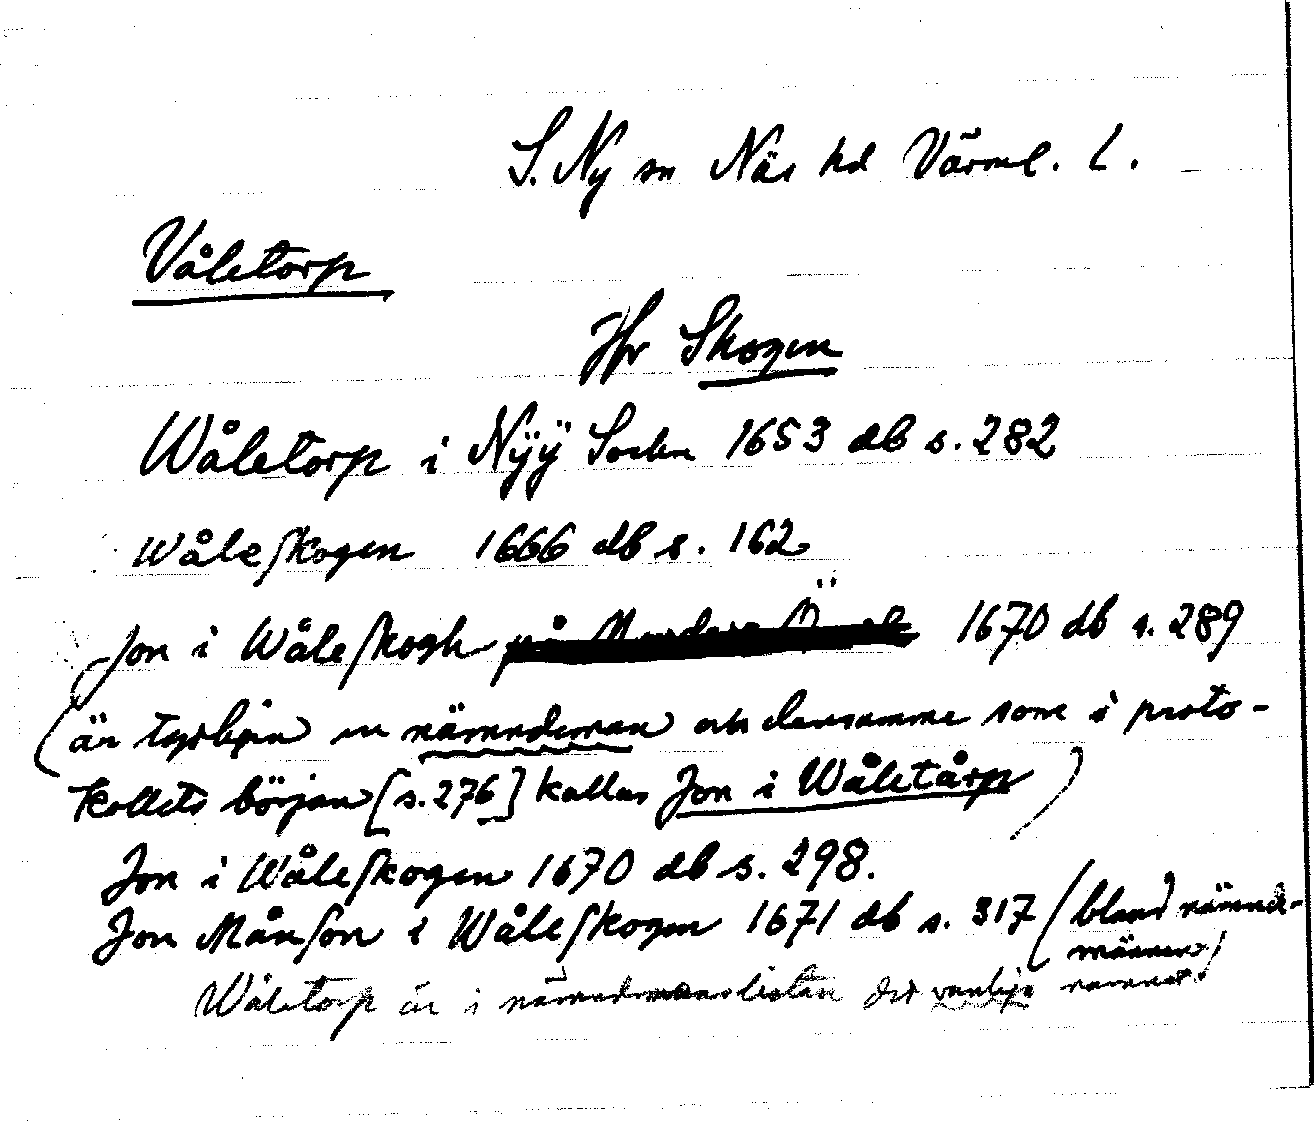 S. Ny sn Näs hd Värml. l.
Våletorp
Jfr Skogen
Wåletorp i Nÿÿ Sochn 1653 db s. 282
Wåleſkogen 1666 db s. 162
Jon i Wåleſkogh på 1670 db s. 289
(är tydligen en nämndeman och densamme som i proto-
kollets början [s. 276] kallas Jon i Wåletårp)
Jon i Wåleſkogen 1670 db s. 298.
Jon Månſon i Wåleſkogen 1671 db s. 317 (bland nämnde-
männen)
Wåletorp är i nämndemanslistan det vanliga namnet.